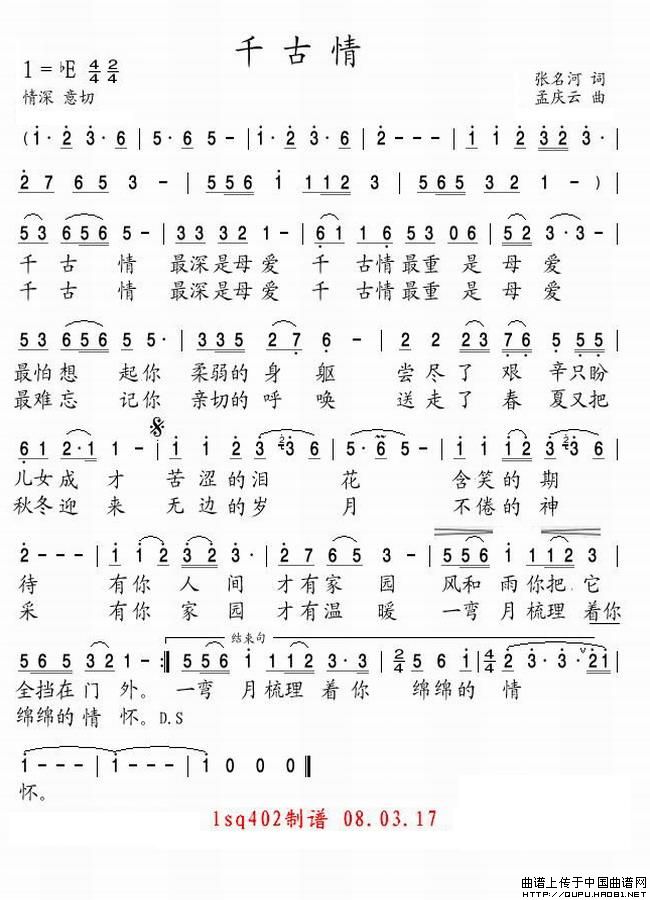 千古情
1=♭E 4/4 2/4
张名河 词
情深 意切
孟庆云 曲
(1· 2 3· 6 | 5· 6 5 - | 1· 2 3· 6 | 2 - - - | 1 1 2 32 3· |
2 7 6 5 3 - | 5 56 1 112 3 | 565 32 1 - ) |
53 656 5 - | 33 32 1 - | 61 16 53 06 | 52 3· 3 - |
千 古 情 最深是母 爱 千 古情最重 是 母 爱
千 古 情 最深是母 爱 千 古情最重 是 母 爱
53 656 5 5· | 335 2 7 6 - | 2 2 23 76 5 55 |
最怕想 起你 柔弱的 身 躯 尝尽了 艰 辛只盼
最难忘 记你 亲切的 呼 唤 送走了 春 夏又把
61 2·1 1 - 1 | 1 1 2 3 3 6 | 5· 6 5 - | 1 1 12 3 3 6 |
儿女成 才 苦 涩的泪 花 含笑的 期
秋冬迎 来 无 边的岁 月 不倦的 神
2 - - - | 1 12 32 3· | 2 7 65 3 - | 556 1 112 3 |
待 有你 人 间 才有家 园 风和 雨你把 它
采 有你 家 园 才有温 暖 一弯 月梳理 着你
结束句
5 6 5 32 1 - :| 556 1 112 3·3 | 2/4 5 6 1 | 4/4 2 3·3·21 |
全挡在 门 外。 一弯 月梳理 着你 绵绵的 情
绵绵的 情 怀。D.S
1 - - - | 1 - - - | 1 0 0 0 ‖
怀。
lsq402制谱 08.03.17
曲谱上传于中国曲谱网
http://QUPU.HAO81.NET